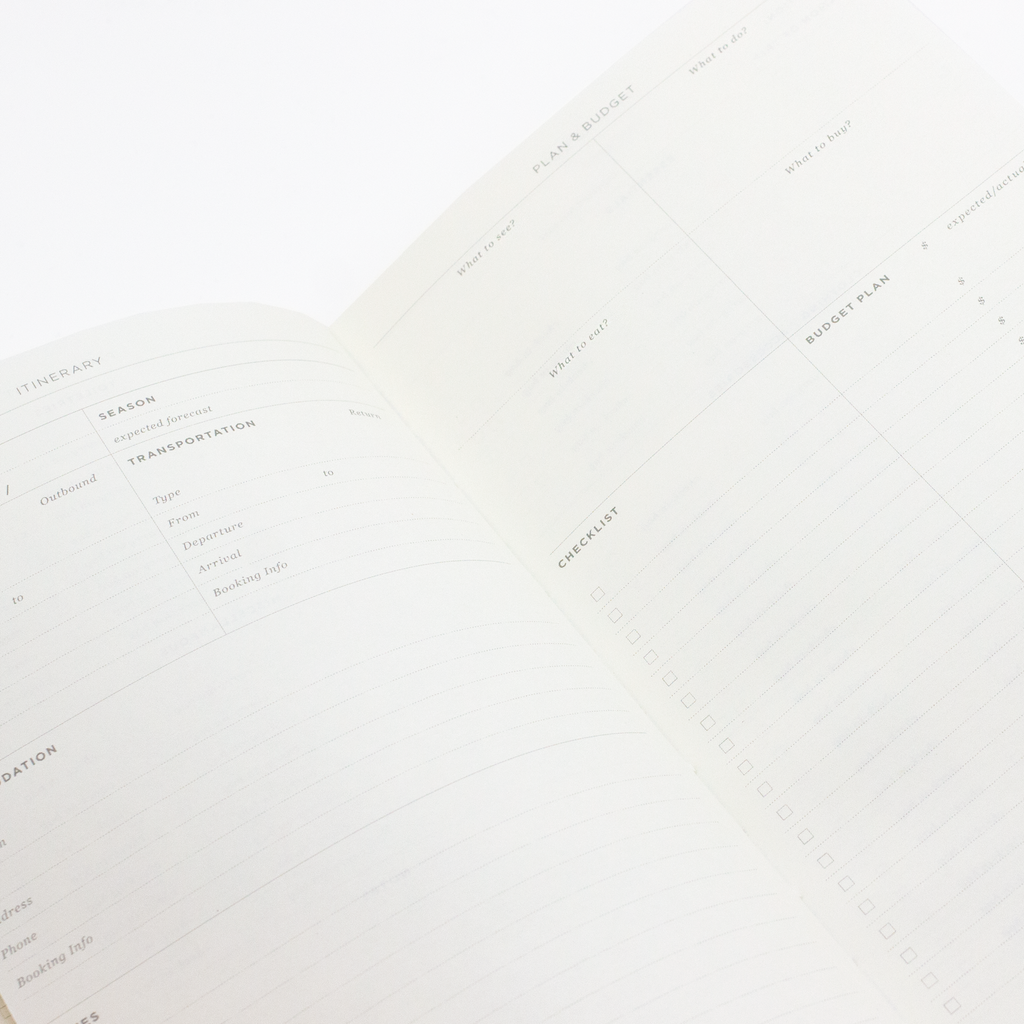 ITINERARY
SEASON
expected forecast
/
TRANSPORTATION
Outbound
Return
Type
to
From
Departure
to
Arrival
Booking Info
Phone
Booking Info
PLAN & BUDGET
What to see?
What to do?
What to eat?
What to buy?
CHECKLIST
BUDGET PLAN
$ expected/actua
$
$
$
$